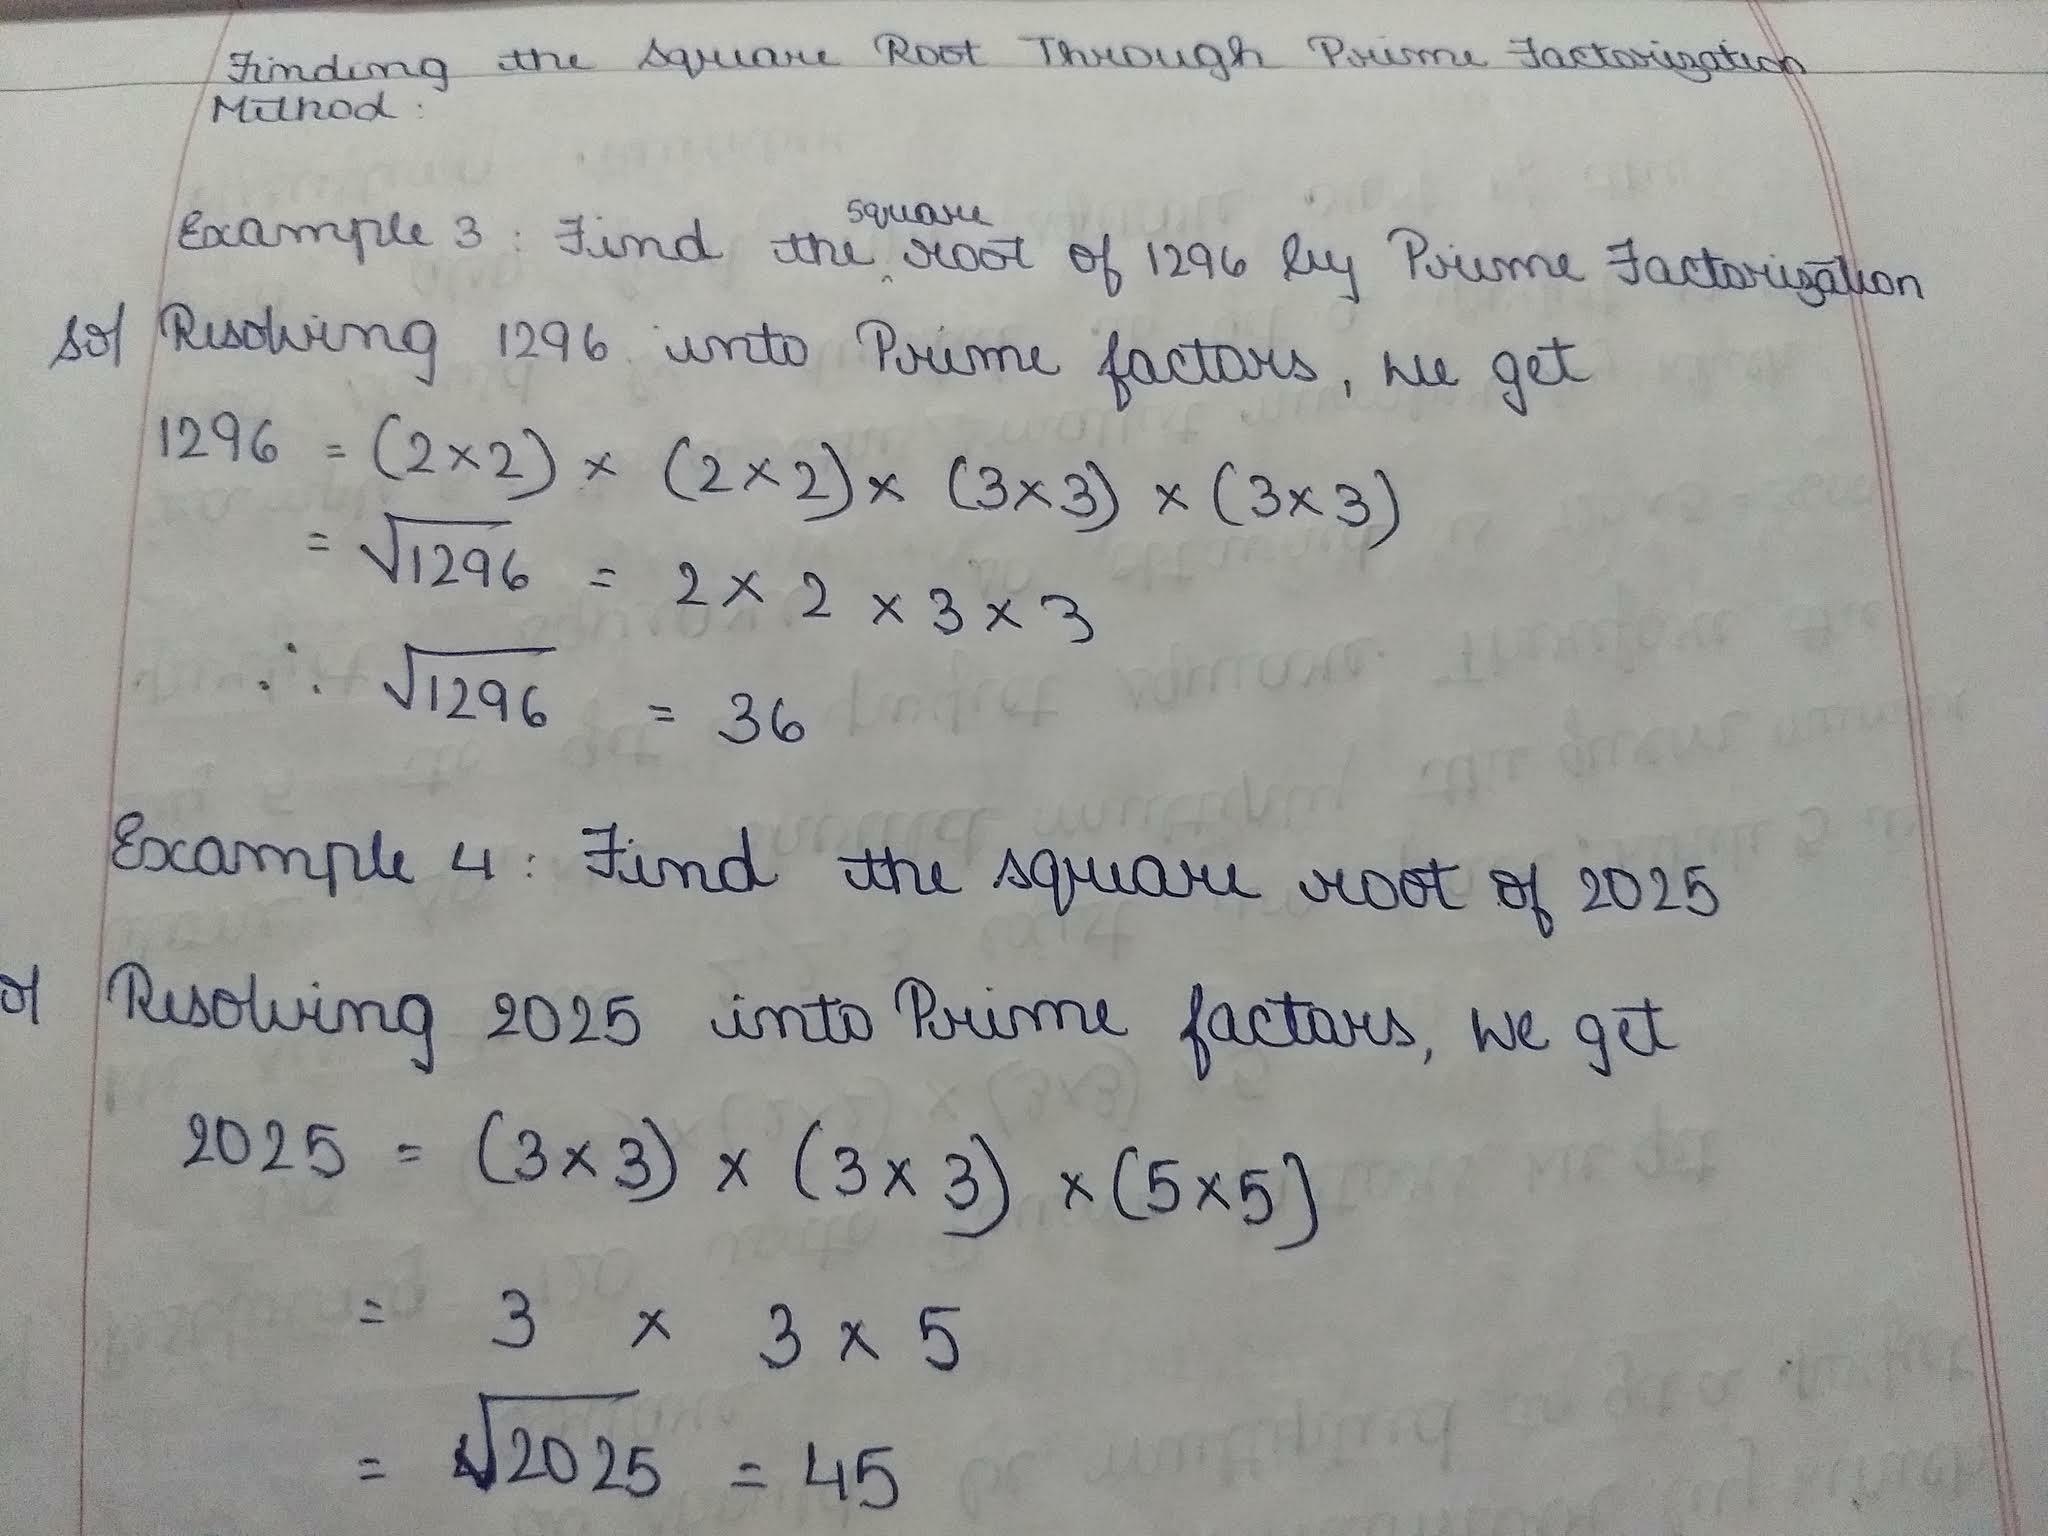 Finding the Square Root Through Prime Factorization
Method:
Example 3: Find the square root of 1296 by Prime Factorization
Sol Resolving 1296 into Prime factors, we get
1296 = (2×2) × (2×2) × (3×3) × (3×3)
= √1296 = 2 × 2 × 3 × 3
∴ √1296 = 36
Example 4: Find the square root of 2025
ol Resolving 2025 into Prime factors, we get
2025 = (3×3) × (3×3) × (5×5)
= 3 × 3 × 5
= √2025 = 45